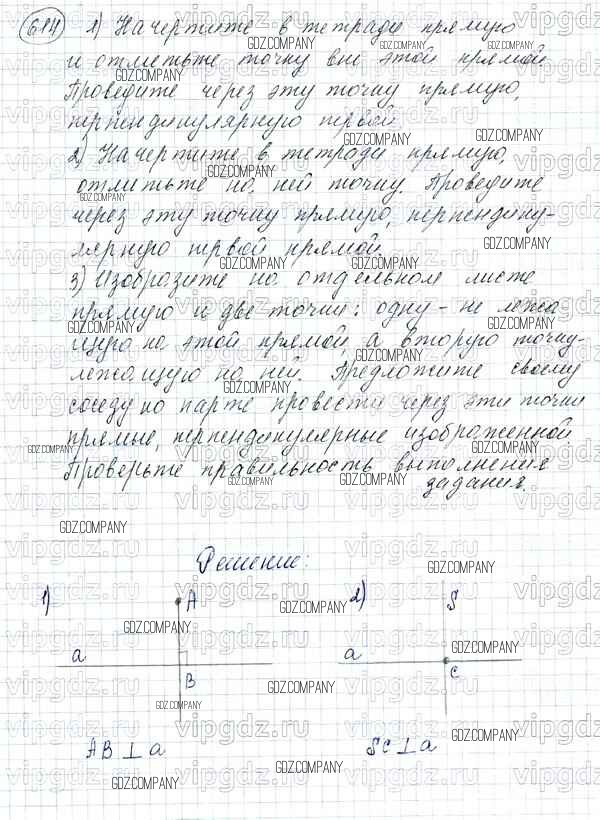 614 1) Начертите в тетради прямую
и отметьте точку вне этой прямой.
Проведите через эту точку прямую,
перпендикулярную первой.
2) Начертите в тетради прямую,
отметьте на ней точку. Проведите
через эту точку прямую, перпендику-
лярную первой прямой.
3) Изобразите на отдельном листе
прямую и две точки: одну - не лежа
щую на этой прямой, а вторую точку-
лежащую на ней. Предложите своему
соседу по парте провести через эти точки
прямые, перпендикулярные изображенной.
Проверьте правильность выполнения
задания.
Решение:
1) A 2) S
a B a C
AB ⊥ a SC ⊥ a
GDZ.COMPANY
vipgdz.ru